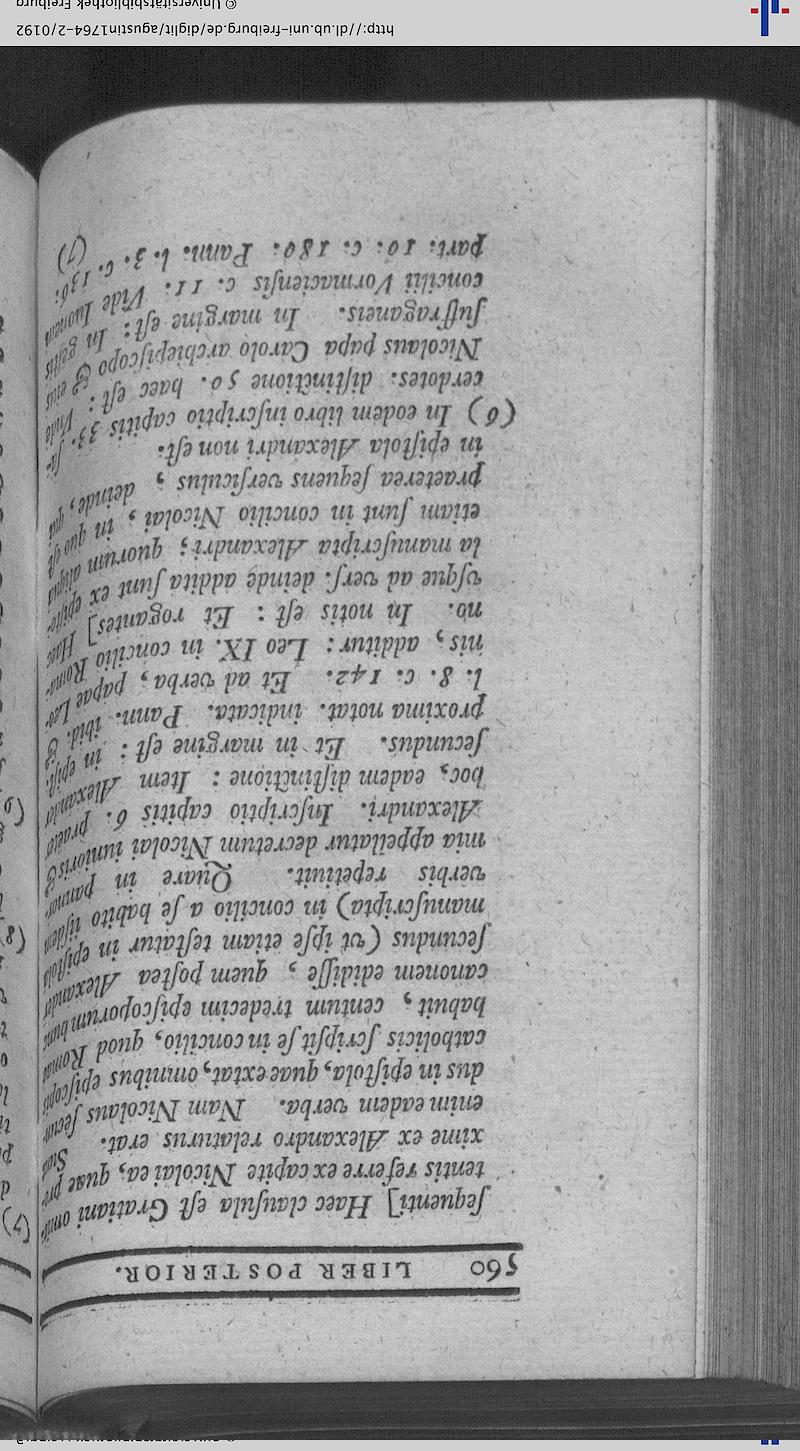 560 LIBER POSTERIOR.
ſequenti] Haec clauſula eſt Gratiani omit-
tentis referre ex capite Nicolai ea, quae pro-
xime ex Alexandro relaturus erat. Sunt
enim eadem verba. Nam Nicolaus ſecun-
dus in epiſtola, quae extat, omnibus epiſcopis
catholicis ſcripſit ſe in concilio, quod Romae
habuit, centum tredecim epiſcoporum hunc
canonem edidiſſe, quem poſtea Alexander
ſecundus (vt ipſe etiam teſtatur in epiſtola
manuſcripta) in concilio a ſe habito iiſdem
verbis repetiuit. Quare in pannor-
mia appellatur decretum Nicolai iunioris &
Alexandri. Inſcriptio capitis 6. praeter
hoc, eadem diſtinctione: Item Alexander
ſecundus. Et in margine eſt: in epiſt.
proxima notat. indicata. Pann. ibid. &
l. 8. c. 142. Et ad verba, papae Leo-
nis, additur: Leo IX. in concilio Roma-
no. In notis eſt: Et rogantes] Haec
vſque ad verſ. deinde addita ſunt ex epiſto-
la manuſcripta Alexandri; quorum aliqua
etiam ſunt in concilio Nicolai, in quo eſt
praeterea ſequens verſiculus, deinde, qui
in epiſtola Alexandri non eſt.
(6) In eodem libro inſcriptio capitis 33. ſa-
cerdotes. diſtinctione 50. haec eſt: Vnde
Nicolaus papa Carolo archiepiſcopo & eius
ſuffraganeis. In margine eſt: In geſtis
concilii Vormacienſis c. 11. Vide Iuonem
part. 10. c. 180. Pann. l. 3. c. 136.
(7)
http://dl.ub.uni-freiburg.de/diglit/agustin1764-2/0192
© Universitätsbibliothek Freiburg